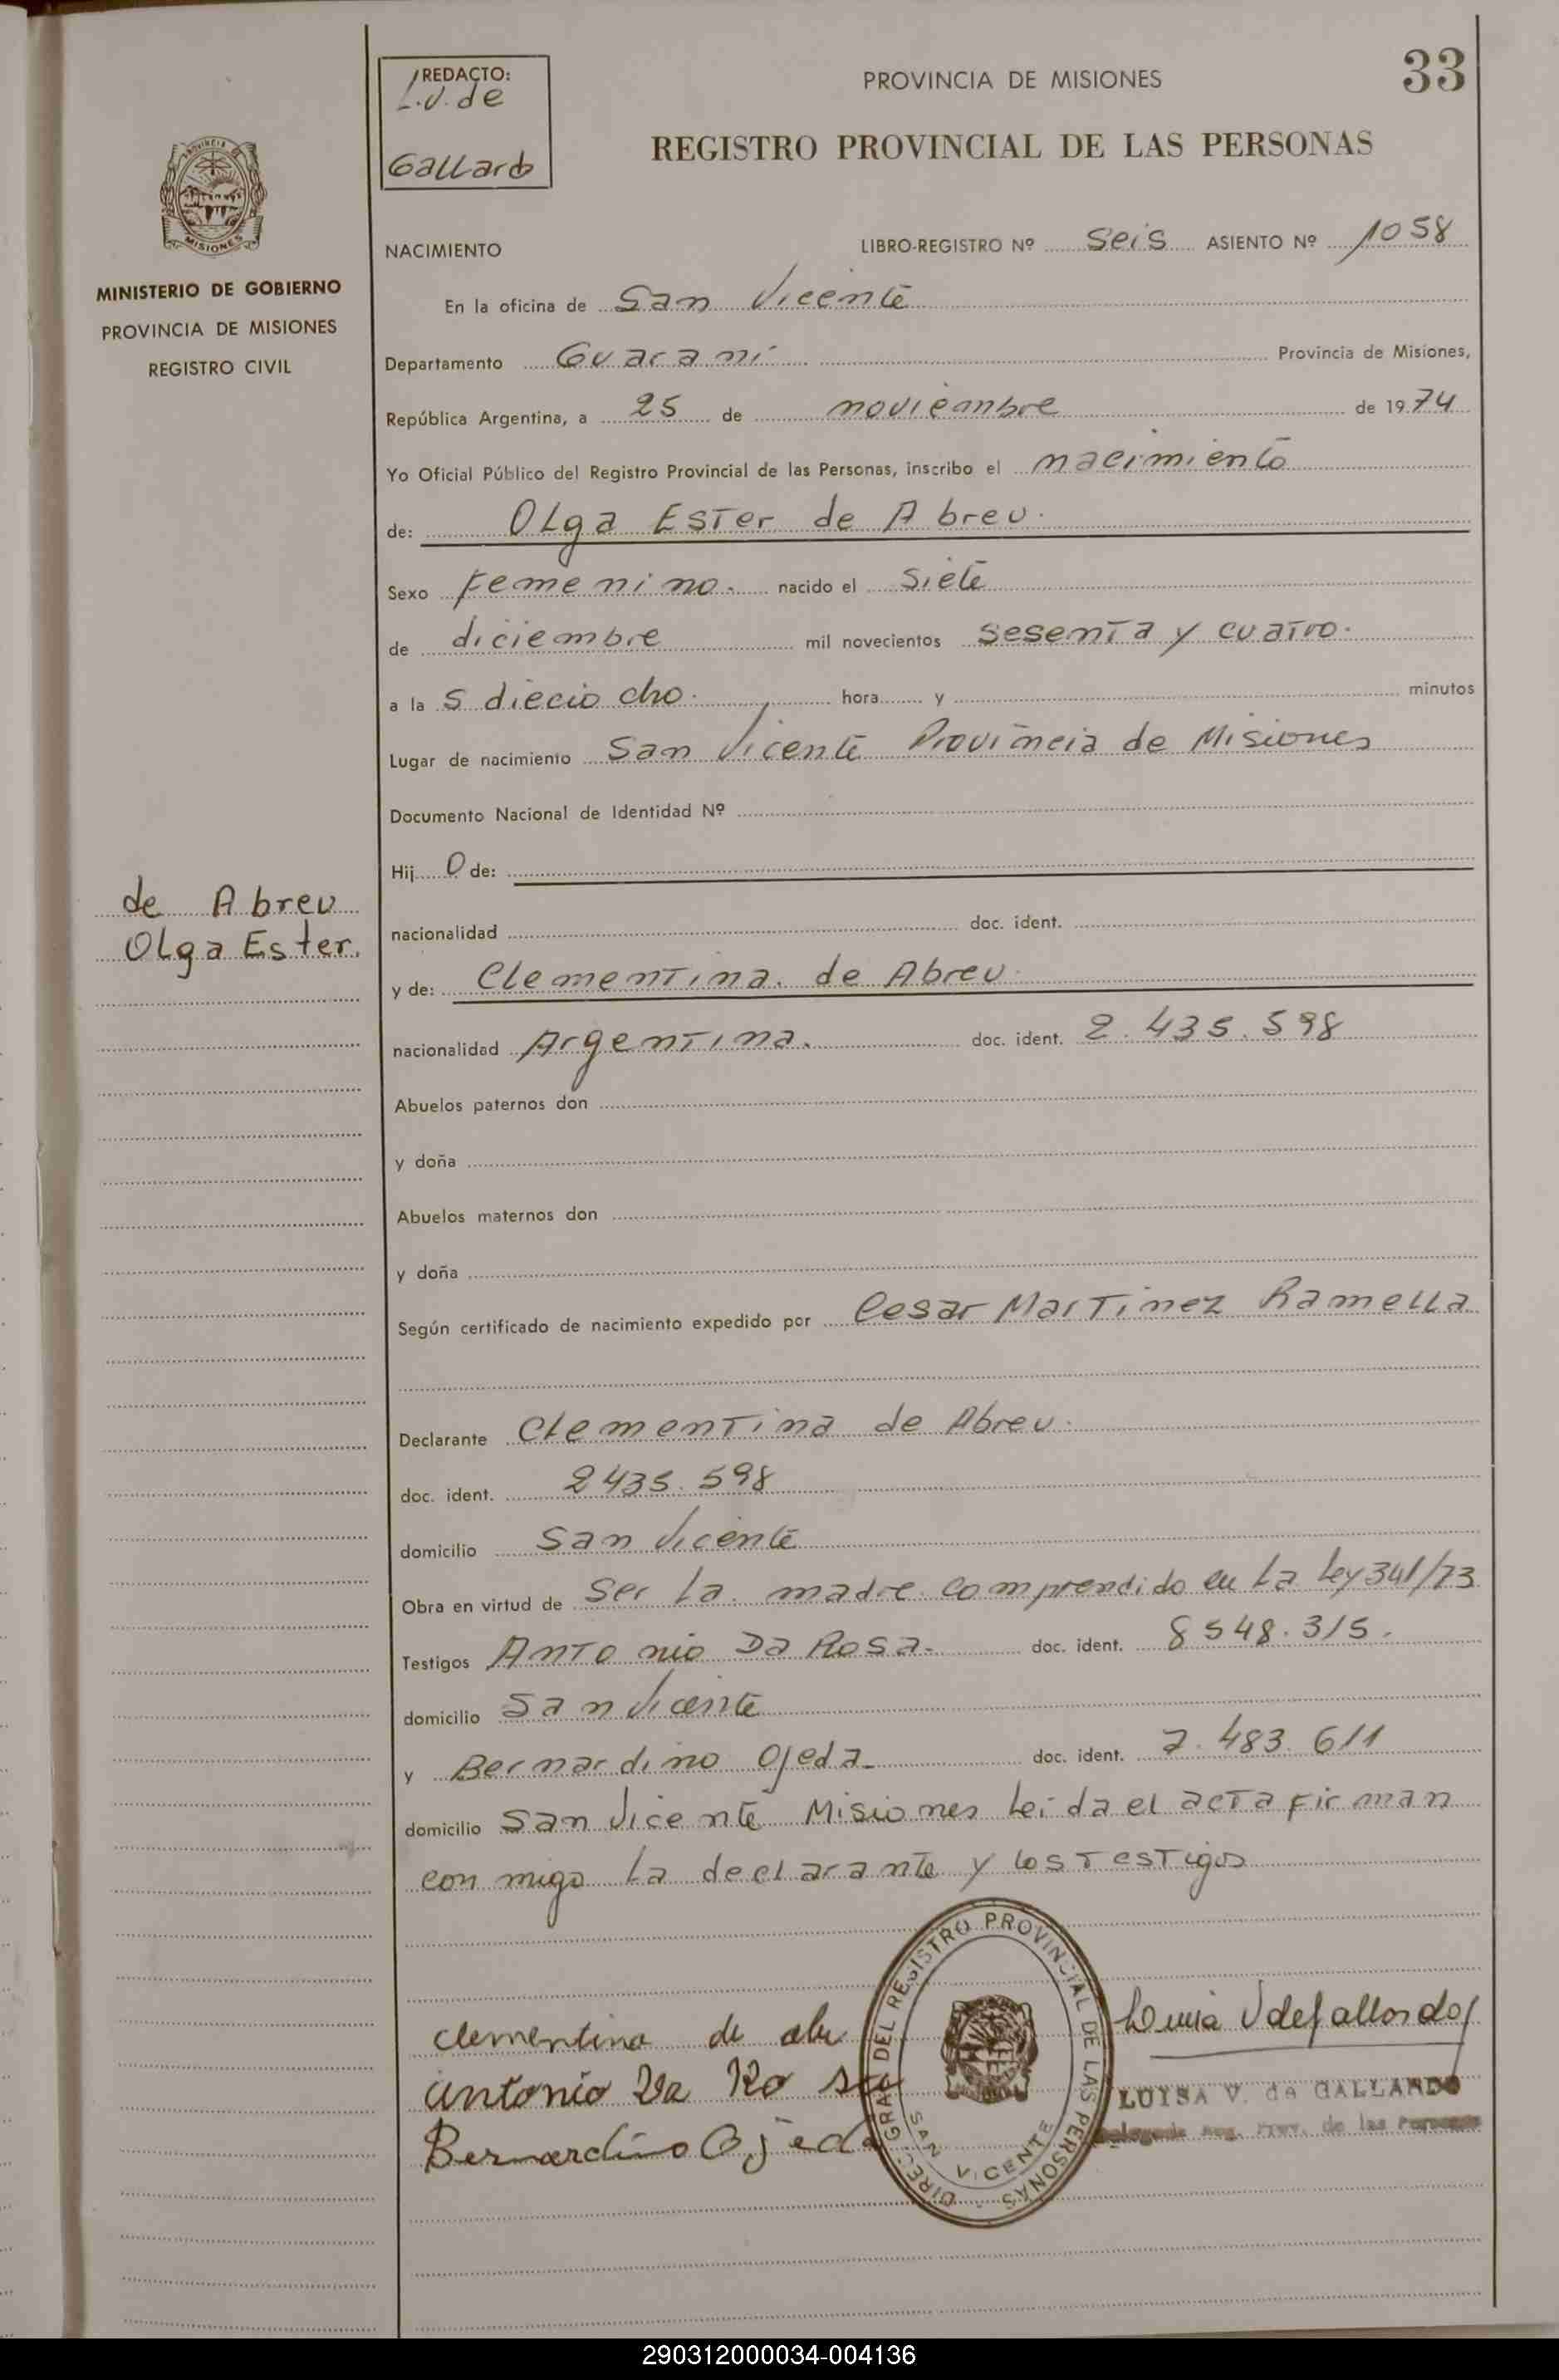 REDACTO:
L.V. de
Gallardo
PROVINCIA DE MISIONES
33
REGISTRO PROVINCIAL DE LAS PERSONAS
PROVINCIA
MISIONES
MINISTERIO DE GOBIERNO
PROVINCIA DE MISIONES
REGISTRO CIVIL
NACIMIENTO LIBRO-REGISTRO Nº Seis ASIENTO Nº 1058
En la oficina de San Vicente
Departamento Guarani Provincia de Misiones,
República Argentina, a 25 de noviembre de 1974
Yo Oficial Público del Registro Provincial de las Personas, inscribo el nacimiento
de: Olga Ester de Abreu.
Sexo Femenino. nacido el Siete
de diciembre mil novecientos sesenta y cuatro.
a la s dieciocho. hora y minutos
Lugar de nacimiento San Vicente Provincia de Misiones
Documento Nacional de Identidad Nº
Hij o de:
de Abreu
Olga Ester.
nacionalidad doc. ident.
y de: Clementina. de Abreu.
nacionalidad Argentina. doc. ident. 2.435.598
Abuelos paternos don
y doña
Abuelos maternos don
y doña
Según certificado de nacimiento expedido por Cesar Martinez Ramella
Declarante Clementina de Abreu.
doc. ident. 2435.598
domicilio San Vicente
Obra en virtud de Ser la. madre comprendido en la Ley 341/73
Testigos Antonio Da Rosa. doc. ident. 8548.315.
domicilio San Vicente
y Bernardino Ojeda doc. ident. 7.483.611
domicilio San Vicente Misiones leida el acta firman
con migo la declarante y los testigos
clementina de abu
antonio Da Ro sa
Bernardino Ojeda
DIREC. GRAL DEL REGISTRO PROVINCIAL DE LAS PERSONAS
SAN VICENTE
Luisa V de Gallardo
LUISA V. de GALLARDO
Delegada Reg. Prov. de las Personas
290312000034-004136